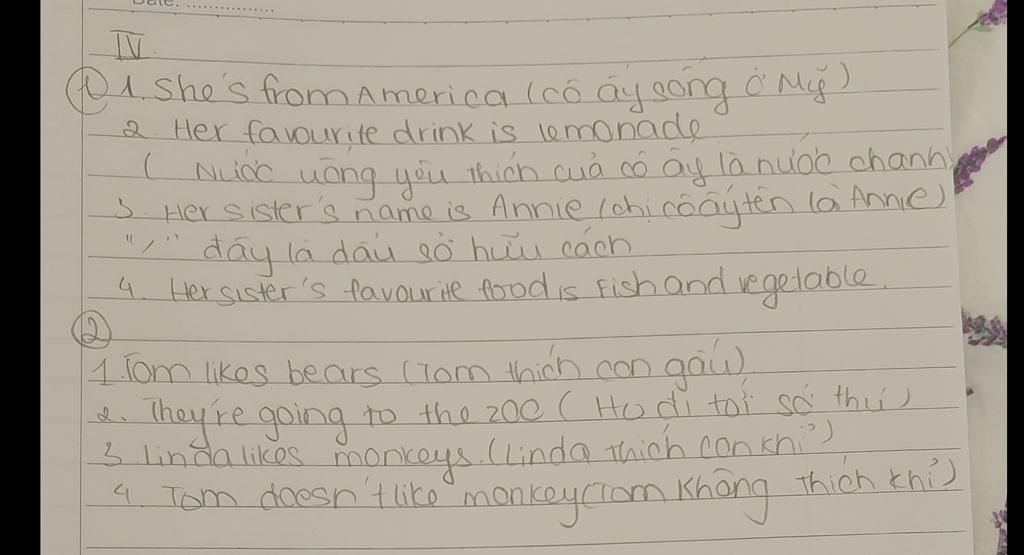 Date: ................
IV
① 1. She's from America (cô ấy sống ở Mỹ)
2. Her favourite drink is lemonade
( Nước uống yêu thích của cô ấy là nước chanh)
3. Her sister's name is Annie (chị cô ấy tên là Annie)
"," đây là dấu sở hữu cách
4. Her sister's favourite food is fish and vegetable.
②
1. Tom likes bears (Tom thích con gấu)
2. They're going to the zoo ( Họ đi tới sở thú)
3 linda likes monkeys. (Linda thích con khỉ)
4. Tom doesn't like monkey (Tom không thích khỉ)